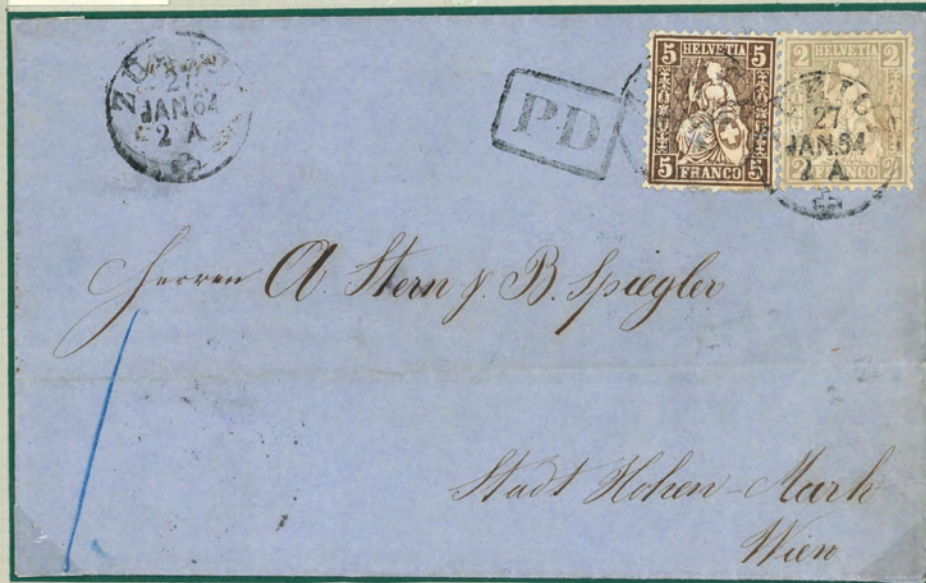 ZÜRICH
27
JAN.64
2 A
PD
5 HELVETIA 5
5 FRANCO 5
2 HELVETIA 2
2 FRANCO 2
ZÜRICH
27
JAN.64
2 A
Herren A. Stern & B. Spiegler
Stadt Hohen-Markt
Wien